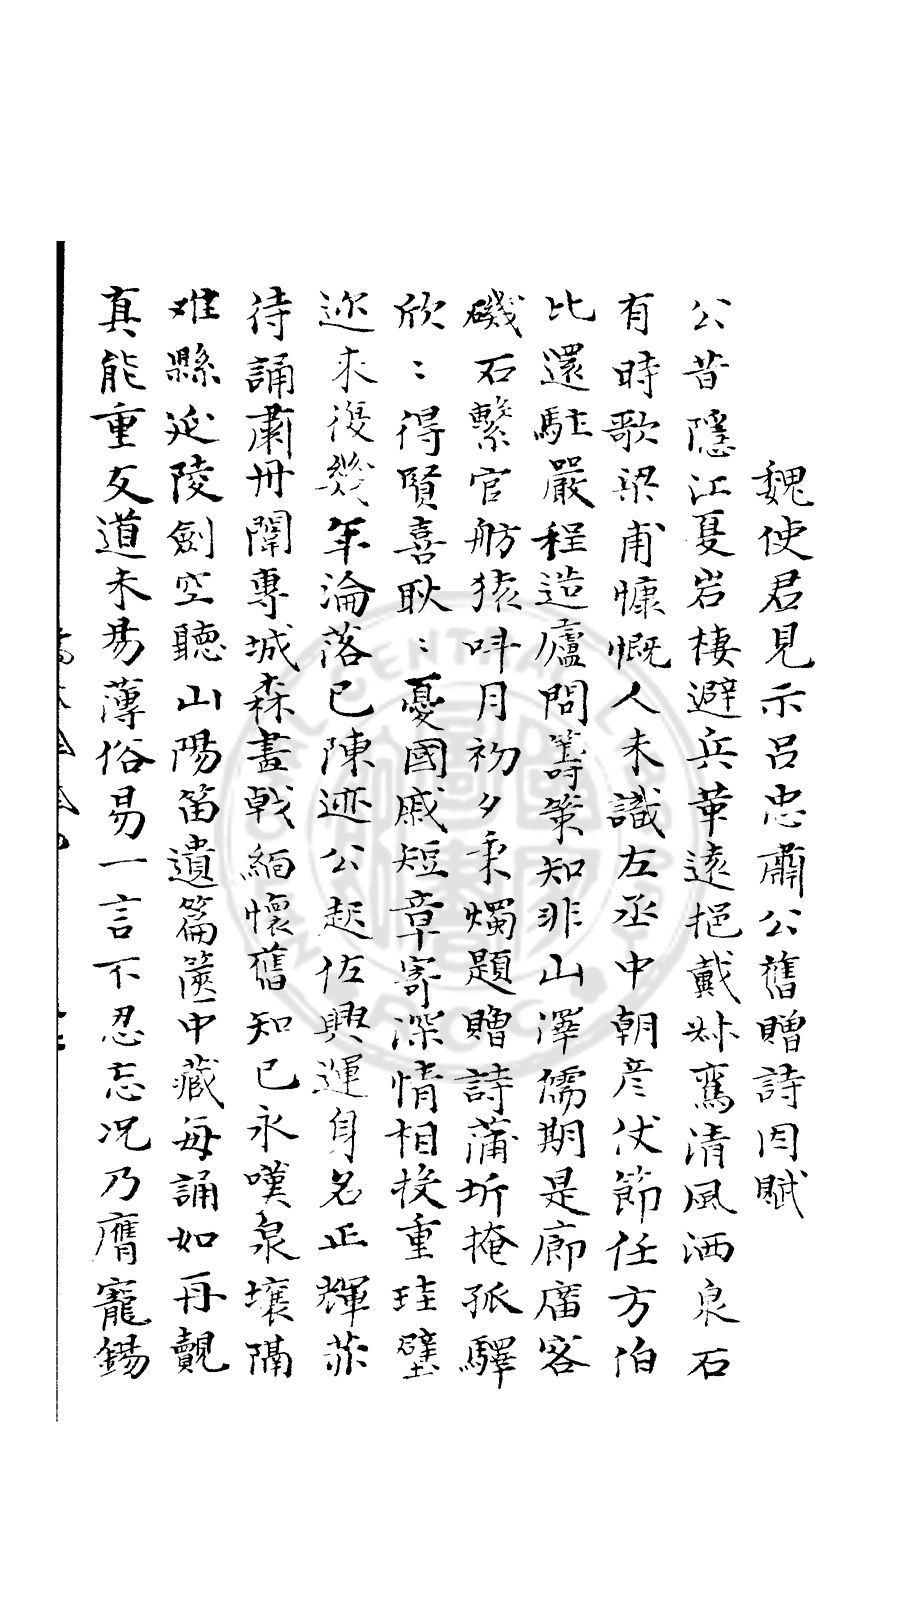 魏使君見示呂忠肅公舊贈詩因賦
公昔隱江夏岩棲避兵革遠挹戴叔鸞清風洒泉石
有時歌梁甫慷慨人未識左丞中朝彥伏節任方伯
比還駐嚴程造廬問籌策知非山澤儒期是廊廟客
磯石繫官舫猿呌月初夕秉燭題贈詩蒲圻掩孤驛
欣〻得賢喜耿〻憂國戚短章寄深情相投重珪璧
迩来復幾年淪落已陳迹公起佐興運身名正輝赤
待誦肅丹闈專城森畫戟緬懷舊知已永嘆泉壤隔
難縣延陵劍空聽山陽笛遺篇篋中藏每誦如再覿
真能重友道未易薄俗易一言不忍忘况乃膺寵錫